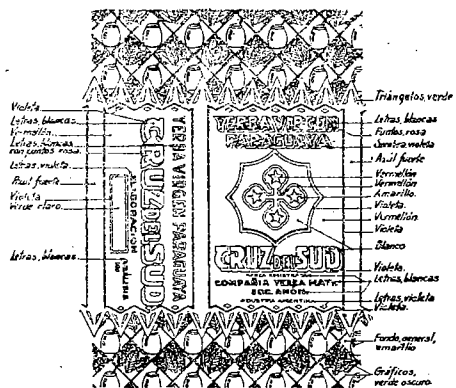 Violeta.
Letras, blancas
Vermellón
Letras, blancas
con puntos rosa.
Letras, violeta
Azul fuerte
Violeta
Verde claro
Letras, blancas
CRUZ DEL SUD
YERBA VIRGEN PARAGUAYA
ELABORACION
YERBA VIRGEN
PARAGUAYA
CRUZ DEL SUD
COMPAÑIA YERBA MATE
SOC. ANON.
INDUSTRIA ARGENTINA
Triángelos, verde
Letras, blancas
Puntos, rosa
Sombra, violeta
Azul fuerte
Vermellón
Vermellón
Amarillo.
Violeta.
Vermellón
Violeta
Blanco
Violeta.
Letras, blancas
Letras, violeta
Violeta.
Fondo, general,
amarillo
Gráficos,
verde oscuro.